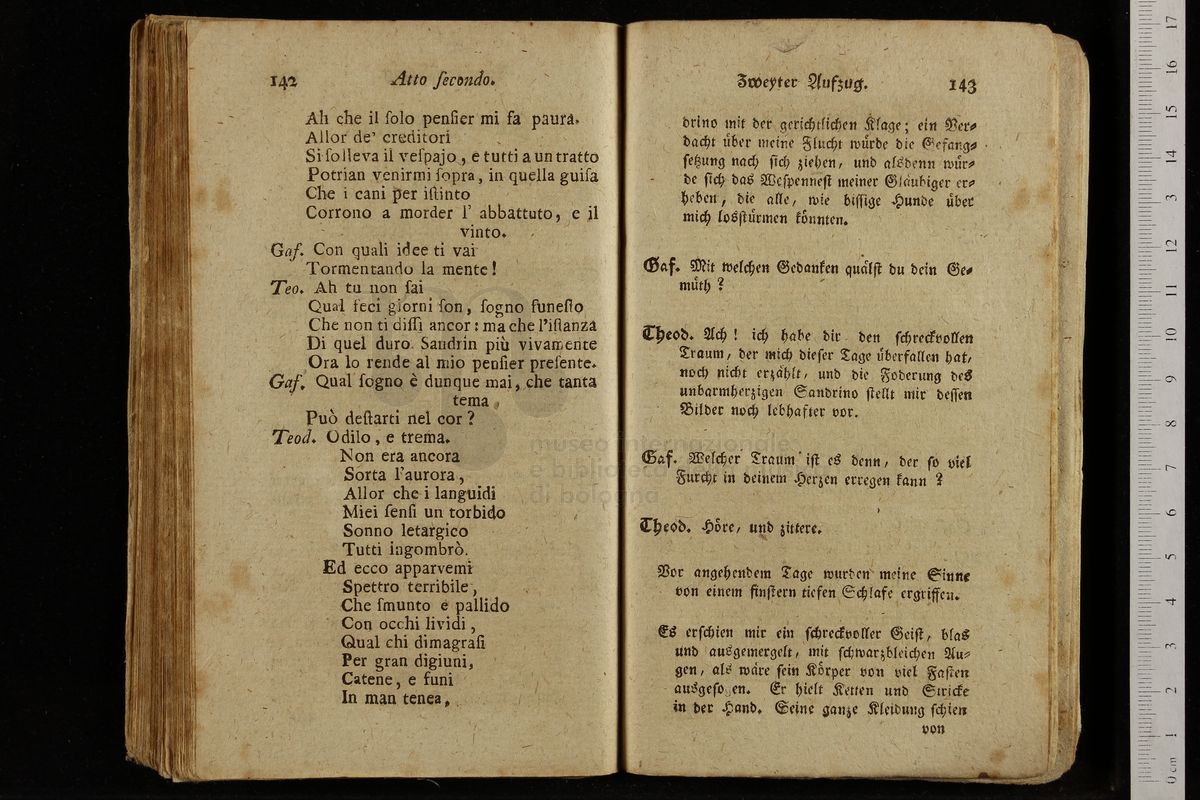 142 Atto ſecondo.
Ah che il ſolo penſier mi fa paura.
Allor de' creditori
Si ſolleva il veſpajo, e tutti a un tratto
Potrian venirmi ſopra, in quella guiſa
Che i cani per iſtinto
Corrono a morder l' abbattuto, e il
vinto.
Gaſ. Con quali idee ti vai
Tormentando la mente!
Teo. Ah tu non ſai
Qual feci giorni ſon, ſogno funeſto
Che non ti diſſi ancor: ma che l'iſtanza
Di quel duro Sandrin più vivamente
Ora lo rende al mio penſier preſente.
Gaſ. Qual ſogno è dunque mai, che tanta
tema
Può deſtarti nel cor?
Teod. Odilo, e trema.
Non era ancora
Sorta l'aurora,
Allor che i languidi
Miei ſenſi un torbido
Sonno letargico
Tutti ingombrò.
Ed ecco apparvemi
Spettro terribile,
Che ſmunto e pallido
Con occhi lividi,
Qual chi dimagraſi
Per gran digiuni,
Catene, e funi
In man tenea,
Zweyter Aufzug. 143
drino mit der gerichtlichen Klage; ein Ver-
dacht über meine Flucht würde die Gefang-
ſetzung nach ſich ziehen, und alsdenn wür-
de ſich das Weſpenneſt meiner Gläubiger er-
heben, die alle, wie biſſige Hunde über
mich losſtürmen könnten.
Gaſ. Mit welchen Gedanken quälſt du dein Ge-
müth?
Theod. Ach! ich habe dir den ſchreckvollen
Traum, der mich dieſer Tage überfallen hat,
noch nicht erzählt, und die Foderung des
unbarmherzigen Sandrino ſtellt mir deſſen
Bilder noch lebhafter vor.
Gaſ. Welcher Traum iſt es denn, der ſo viel
Furcht in deinem Herzen erregen kann?
Theod. Höre, und zittere.
Vor angehendem Tage wurden meine Sinne
von einem finſtern tiefen Schlafe ergriffen.
Es erſchien mir ein ſchreckvoller Geiſt, blas
und ausgemergelt, mit ſchwarzbleichen Au-
gen, als wäre ſein Körper von viel Faſten
ausgeſo en. Er hielt Ketten und Stricke
in der Hand. Seine ganze Kleidung ſchien
von
museo internazionale
e biblioteca
di bologna